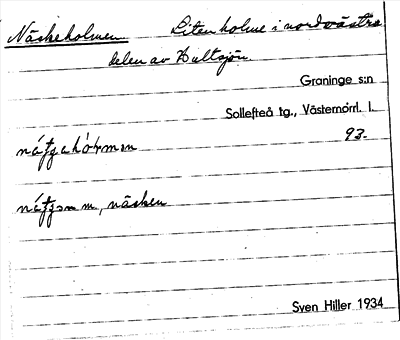 Näskeholmen Liten holme i nordvästra
delen av Hultsjön.
Graninge s:n
Sollefteå tg., Västernorrl. l.
93.
näsken
Sven Hiller 1934